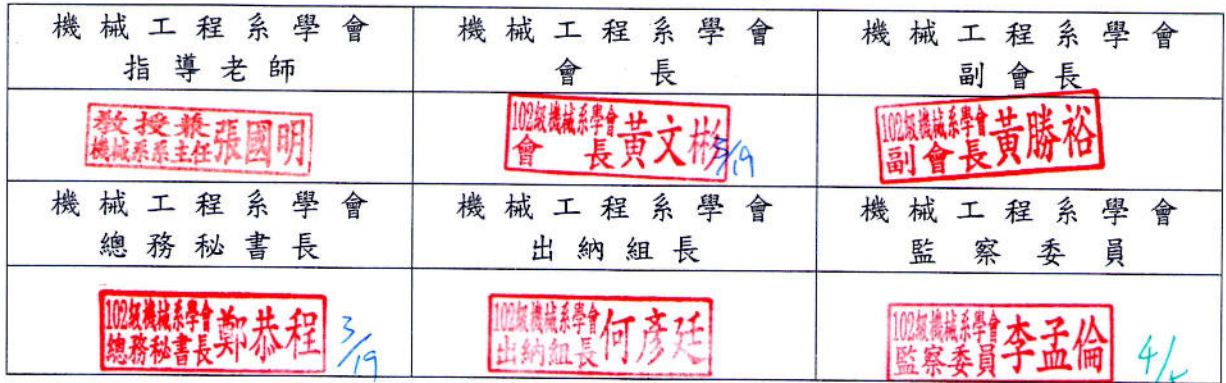 機械工程系學會
指導老師
機械工程系學會
會長
機械工程系學會
副會長
教授兼
機械系系主任
張國明
102級機械系學會
會長
黃文彬
/19
102級機械系學會
副會長
黃勝裕
機械工程系學會
總務秘書長
機械工程系學會
出納組長
機械工程系學會
監察委員
102級機械系學會
總務秘書長
鄭恭程
3/19
102級機械系學會
出納組長
何彥廷
102級機械系學會
監察委員
李孟倫
4/